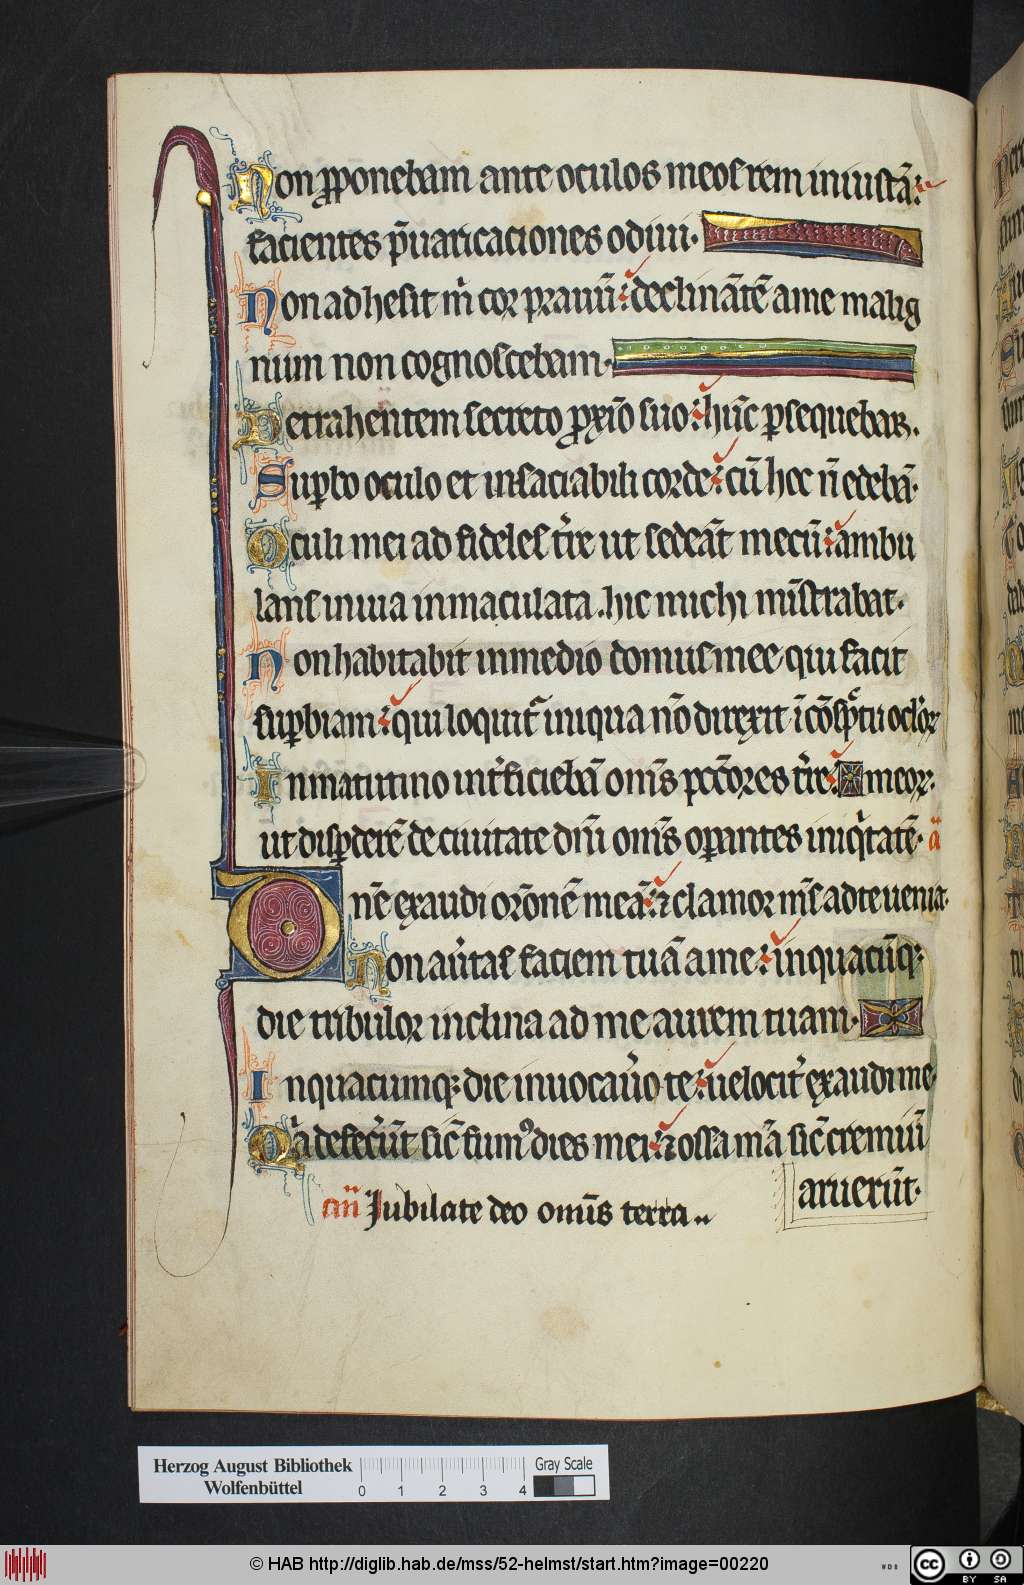 Non ꝓponebam ante oculos meos rem iniustā:
facientes p̄uaricaciones odiui.
Non adhesit m̄ cor prauū: declinātē a me malig
num non cognoscebam.
Detrahentem secreto ꝓxīo suo: hūc ꝑsequebar.
Suꝑbo oculo et insaciabili corde: cū hoc n̄ edebā.
Oculi mei ad fideles t̄re ut sedeāt mecū: ambu
lans in uia inmaculata. hic michi mīstrabat.
Non habitabit in medio domus mee qui facit
suꝑbiam: qui loquit̄ iniqua nō direxit ī cōsp̄tu oclōꝝ
In matutino int̄ficiebā om̄s pccōres t̄re: meoꝝ.
ut disꝑderē de ciuitate dn̄i om̄s oꝑantes iniq̄tatē. a
Dn̄e exaudi orōnē meā: ⁊ clamor m̄s ad te ueniat.
Non au̾tas faciem tuā a me: in quacūqꝫ
die tribulor inclina ad me aurem tuam.
In quacumqꝫ die inuocau̾o te: uelocit̾ exaudi me.
Q̄a defec̄ūt sic̄ fumꝰ dies mei: ⁊ ossa m̄a sic̄ cremiū
aruerūt.
an̄ Iubilate deo omīs terra..
Herzog August Bibliothek
Wolfenbüttel
0 1 2 3 4
Gray Scale
© HAB http://diglib.hab.de/mss/52-helmst/start.htm?image=00220
WDB
cc BY SA